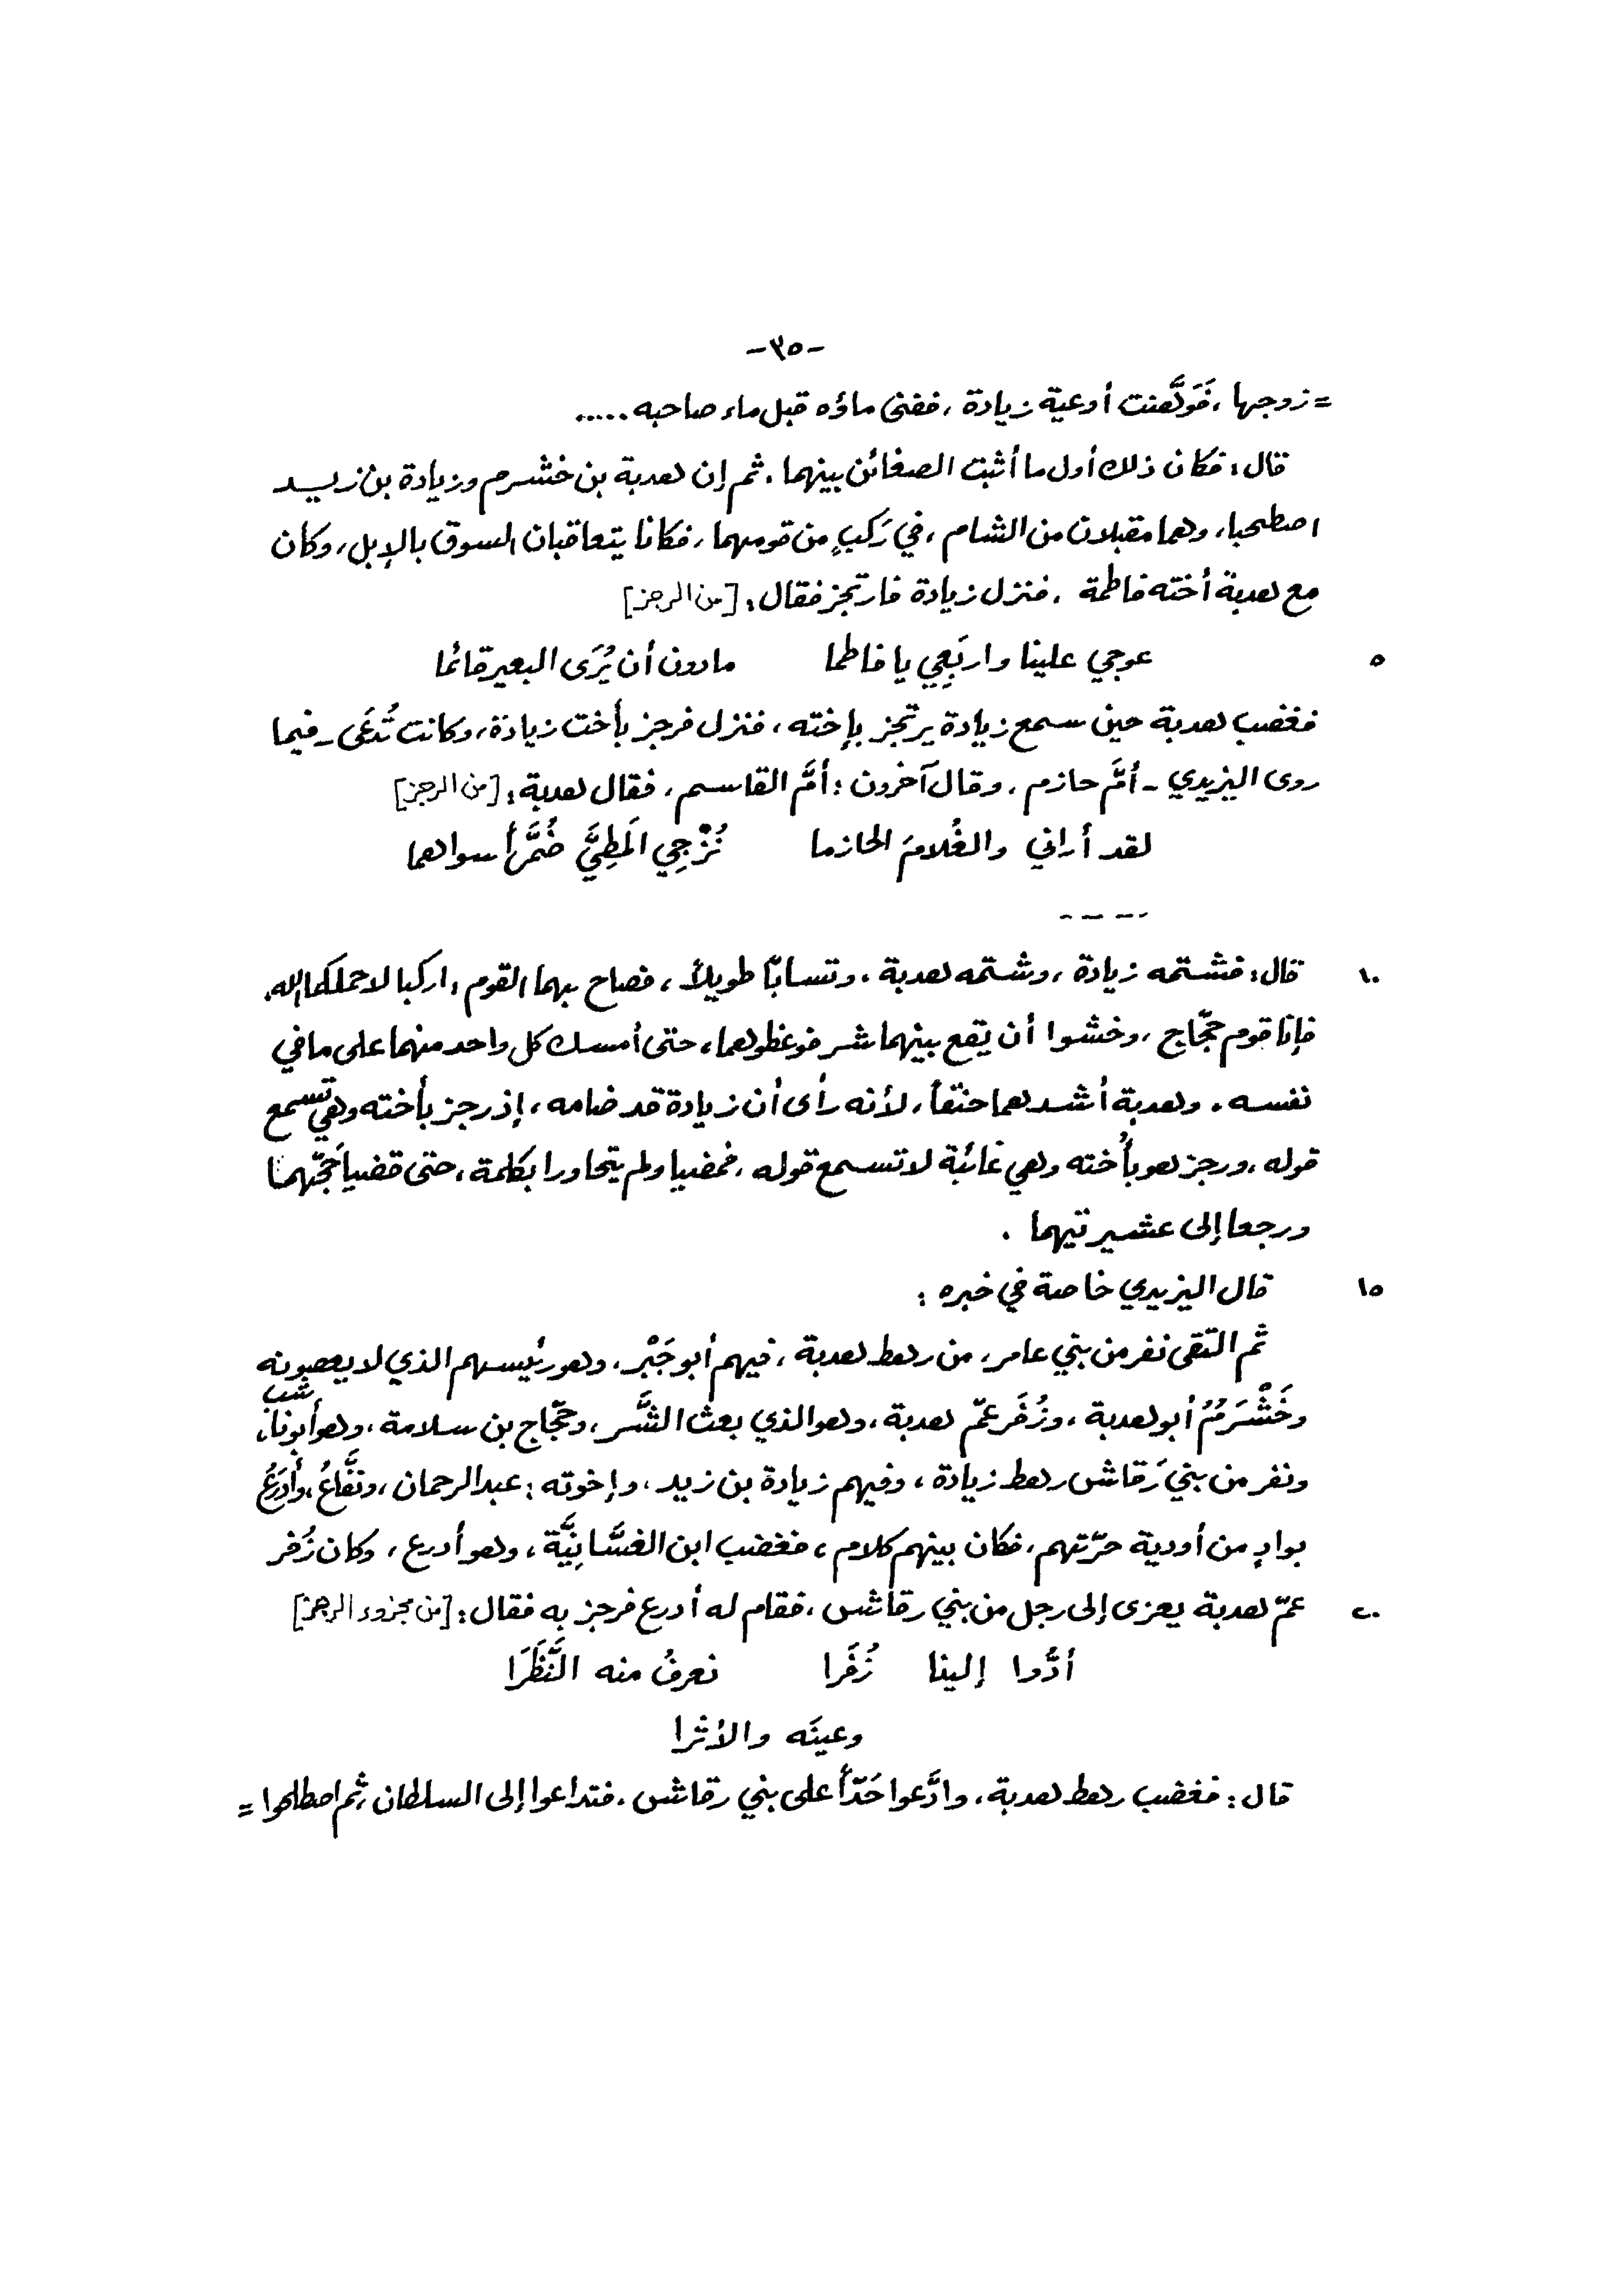 -٣٥-
= زوجها ، فَوَلَّهنت أوعية زيادة ، ففنى ماؤه قبل ماء صاحبه .....
قال : فكان ذلك أول ما أثبت الضغائن بينهما . ثم إن هدبة بن خشرم وزيادة بن زيد
اصطحبا ، وهما مقبلان من الشام ، في رَكبٍ من قومهما ، فكانا يتعاقبان السوق بالإبل ، وكان
مع هدبة أخته فاطمة . فنزل زيادة فارتجز فقال : [من الرجز]
٥ عوجي علينا واربَعِي يا فاطما مادون أن يُرَى البعير قائما
فغضب هدبة حين سمع زيادة يرتجز بإخته ، فنزل فرجز بأخت زيادة ، وكانت تُدعَى - فيما
روى اليزيدي - أمَّ حازم . وقال آخرون : أمَّ القاسم ، فقال هدبة : [من الرجز]
لقد أراني والغُلامَ الحازما نُزْجِي المَطِيَّ ضُمَّرأ سواهما
----
١٠ قال : فشتمه زيادة ، وشتمه هدبة . وتسابّا طويلاً ، فصاح بهما القوم : اركبا لا حملكما الله .
فإنا قوم حجّاج ، وخشوا أن يقع بينهما شر فوعظوهما ، حتى أمسك كل واحد منهما على ما في
نفسه . وهدبة أشدهما حنقاً ، لأنه رأى أن زيادة قد ضامه ، إذ رجز بأخته وهي تسمع
قوله ، ورجز هو بأُخته وهي غائبة لا تسمع قوله ، فمضيا ولم يتحاورا بكلمة ، حتى قضيا حَجّهما
ورجعا إلى عشيرتيهما .
١٥ قال اليزيدي خاصة في خبره :
ثم التقى نفر من بني عامر ، من رهط هدبة ، فيهم أبو جَبْر ، وهو رئيسهم الذي لا يعصونه
وخَشْرَمُ أبو هدبة ، وزُفَر عمّ هدبة ، وهو الذي بعث الشَّر ، وحجّاج بن سلامة ، وهو أبو ناشب ،
ونفر من بني رَقاش رهط زيادة ، وفيهم زيادة بن زيد ، وإخوته : عبد الرحمان ، ونفَّاعُ ، وأدرَعُ
بوادٍ من أودية حرّتهم . فكان بينهم كلام ، فغضب ابن الغسَّانِيَّة ، وهو أدرع ، وكان زُفر
٢٠ عمّ هدبة يعزى إلى رجل من بني رقاش ، فقام له أدرع فرجز به فقال : [من مجزوء الرجز]
أدُّوا إلينا زُفَرا نعرفُ منه النَّظَرَا
وعينَه والأثرا
قال : فغضب رهط هدبة ، وادَّعوا حَدّاً على بني رقاش . فتداعوا إلى السلطان ، ثم اصطلحوا =